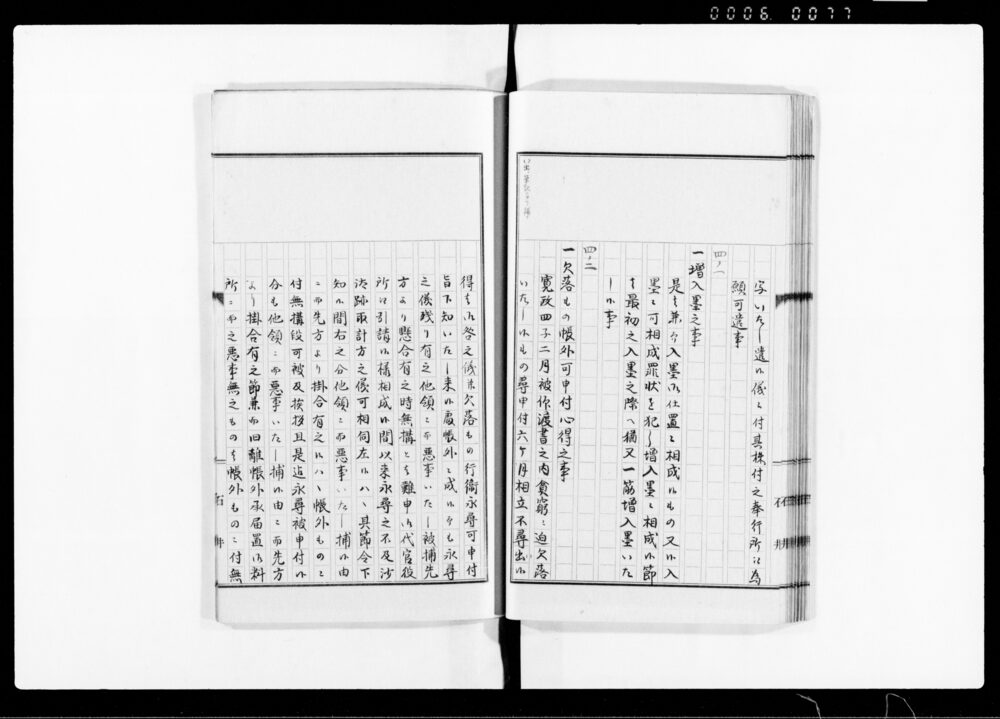 0006 0077
字いたし遣候儀ニ付其株付之奉行所江為
願可遣事
四ノ一
一増入墨之事
是者兼而入墨御仕置ニ相成候もの又候入
墨ニ可相成罪状を犯し増入墨ニ相成候節
者最初之入墨之際へ猶又一筋増入墨いた
し候事
四ノ二
一欠落もの帳外可申付心得之事
寛政四子二月被仰渡書之内貧窮ニ迫欠落
いたし候もの尋申付六ケ月相立不尋出候
得者御咎之儀欠落もの行衛永尋可申付
旨下知いたし来候處帳外ニ成候而も永尋
之儀残り有之他領ニ而悪事いたし被捕先
方より懸合有之時無構と者難申御代官役
所江引請候様相成候間以来永尋之不及沙
汰跡取計方之儀可相伺左候ハヽ其節令下
知候間右之分他領ニ而悪事いたし捕候由
ニ而先方より掛合有之候ハヽ帳外ものニ
付無構段可被及挨拶且是迄永尋被申付候
分も他領ニ而悪事いたし捕候由ニ而先方
より掛合有之節兼而旧離帳外承届置候料
所ニ而之悪事無之もの者帳外ものニ付無
石井